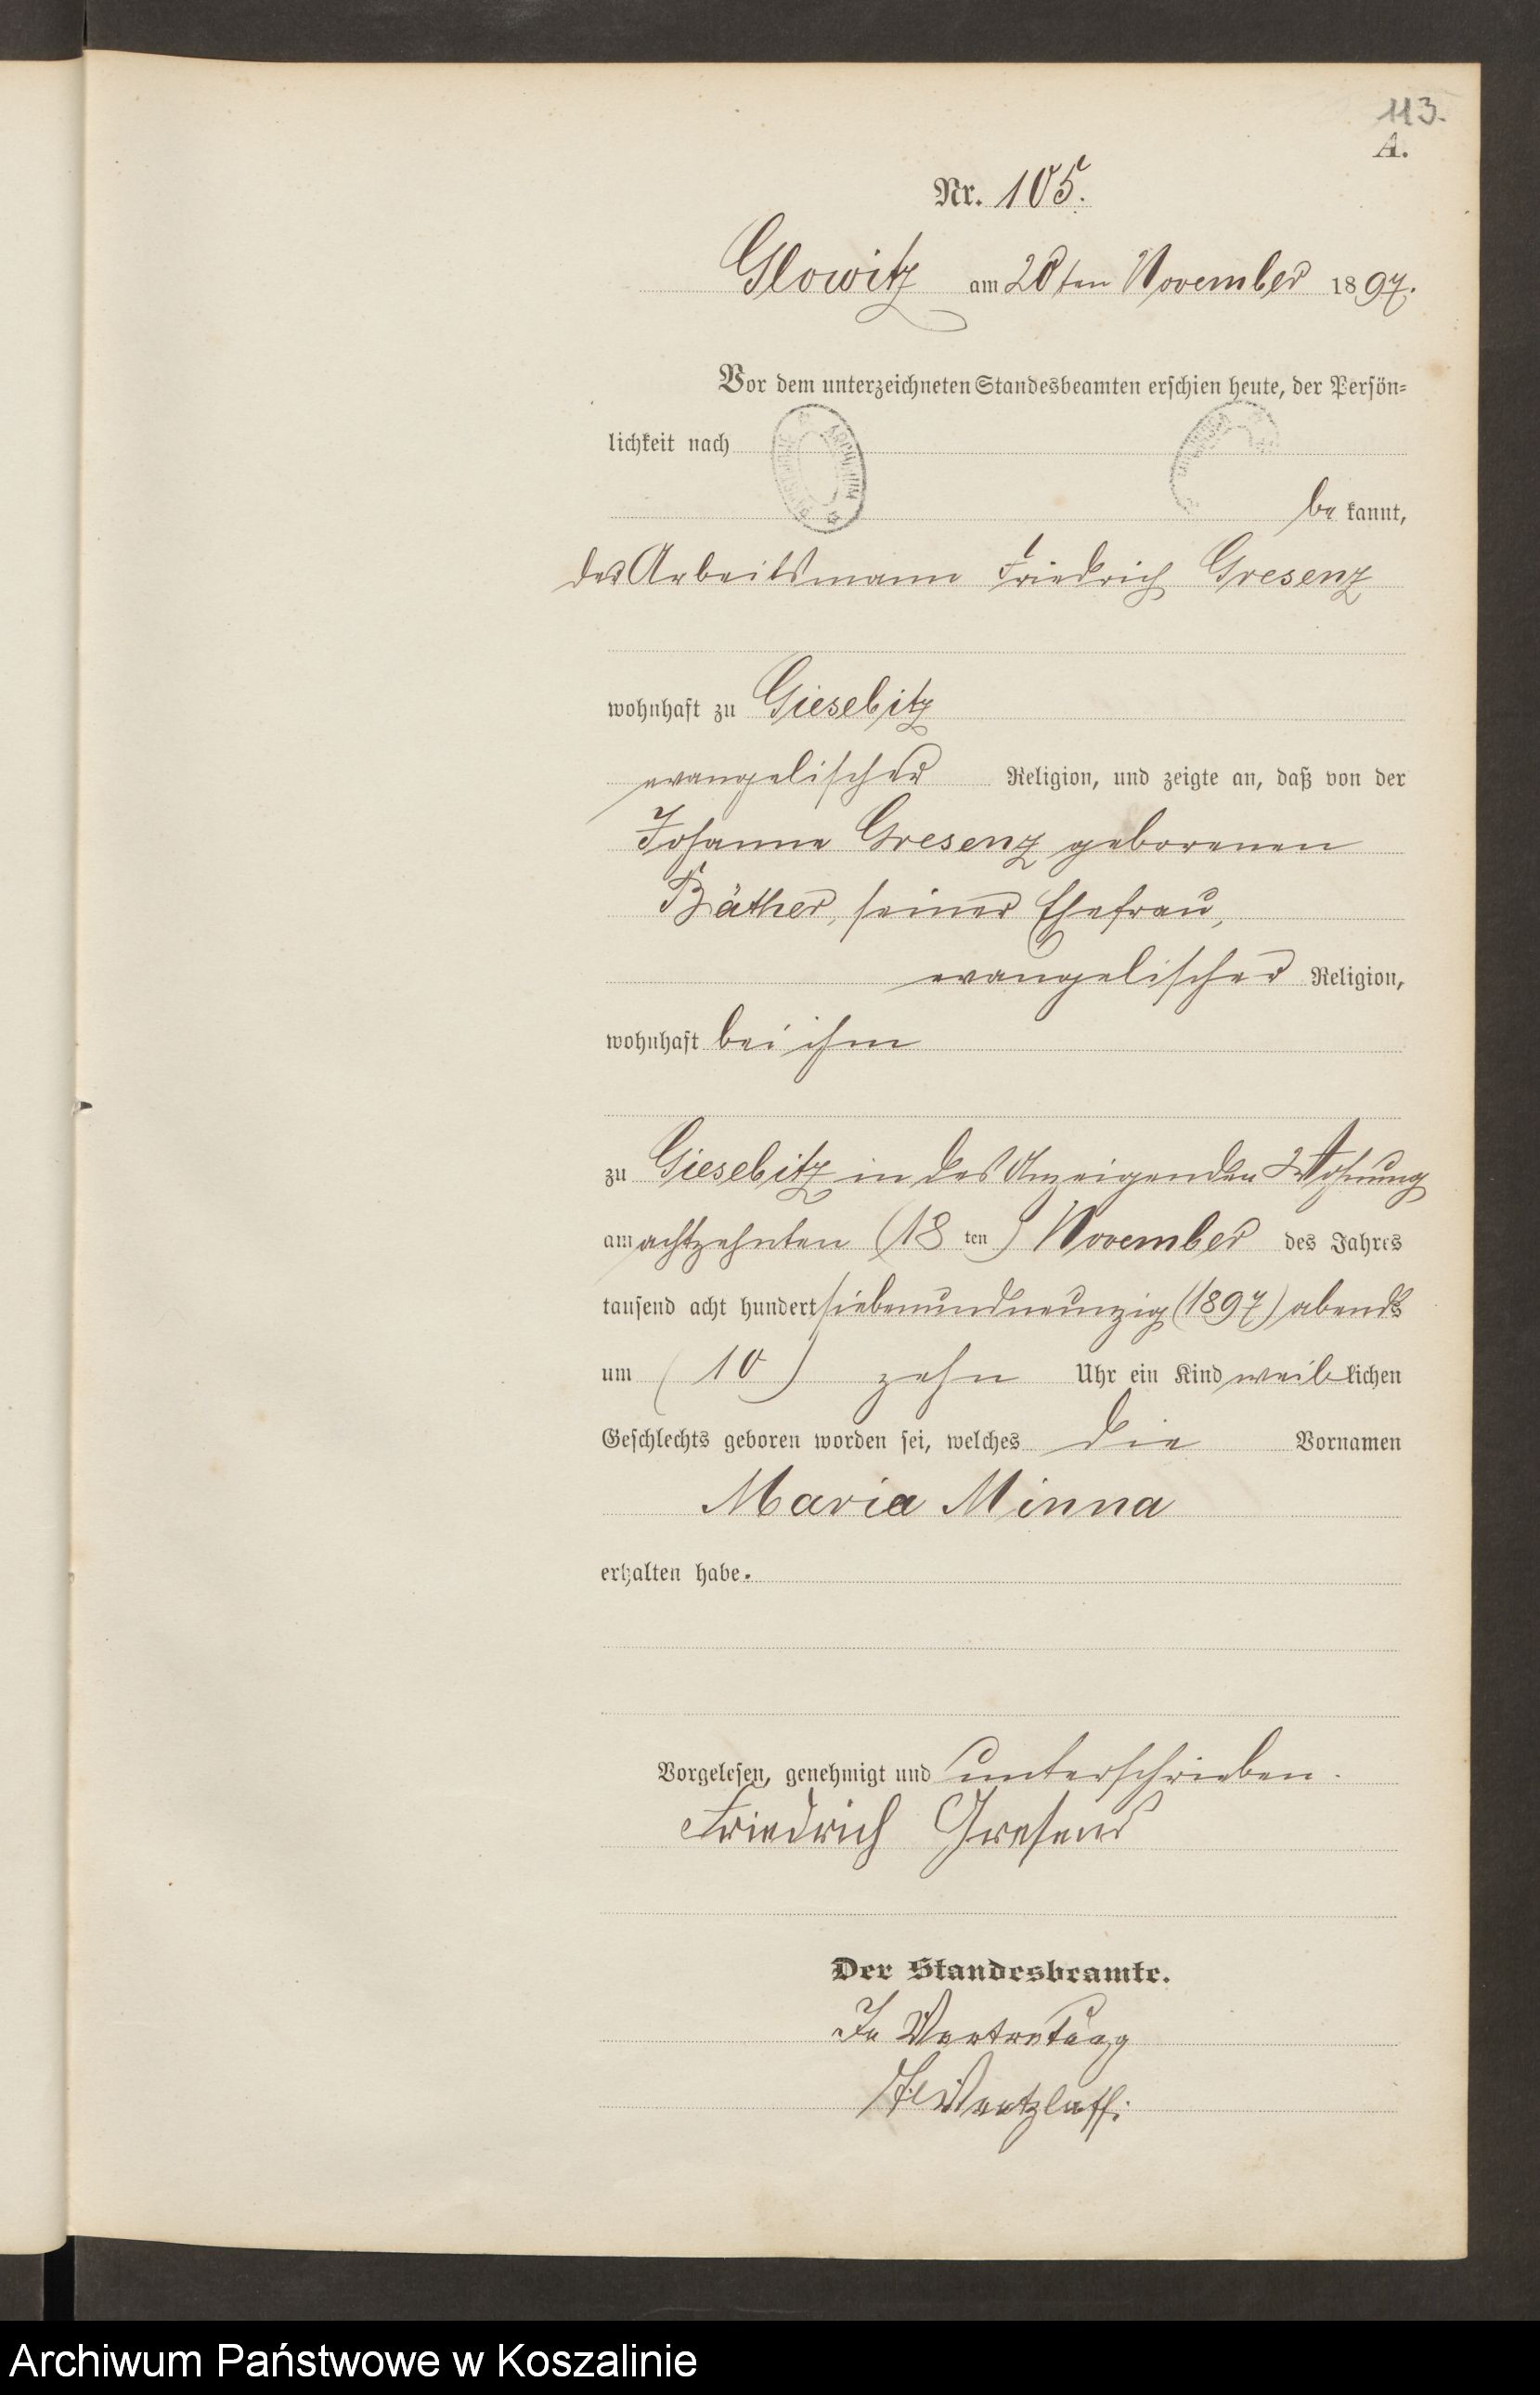 113.
A.
Nr. 105.
Glowitz am 20ten November 1897.
Vor dem unterzeichneten Standesbeamten erschien heute, der Persön-
lichkeit nach
ARCHIWUM
be kannt,
der Arbeitsmann Friedrich Gresenz
wohnhaft zu Giesebitz
evangelischer Religion, und zeigte an, daß von der
Johanne Gresenz geborenen
Bäther, seiner Ehefrau,
evangelischer Religion,
wohnhaft bei ihm
zu Giesebitz in des Anzeigenden Wohnung
am achtzehnten (18 ten) November des Jahres
tausend acht hundert siebenundneunzig (1897) abends
um (10) zehn Uhr ein Kind weiblichen
Geschlechts geboren worden sei, welches die Vornamen
Maria Minna
erhalten habe.
Vorgelesen, genehmigt und unterschrieben.
Friedrich Gresens
Der Standesbeamte.
In Vertretung
Archiwum Państwowe w Koszalinie